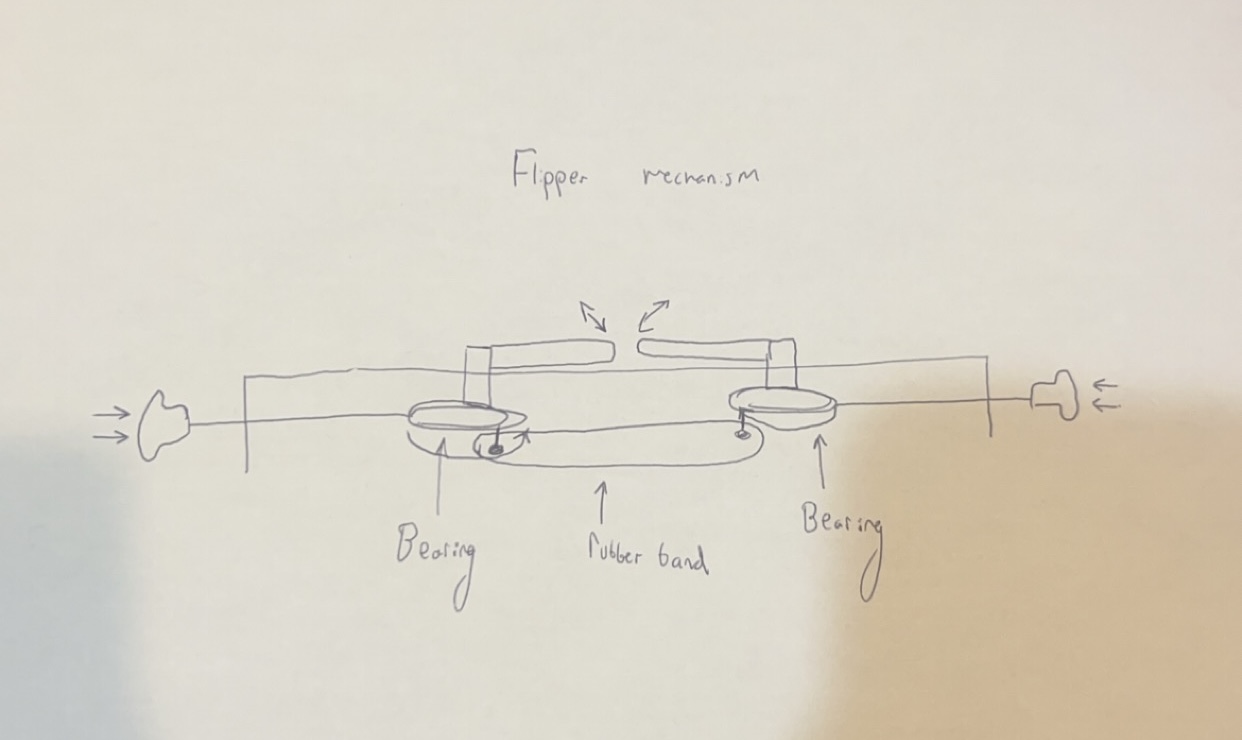 Flipper mechanism
Bearing
rubber band
Bearing